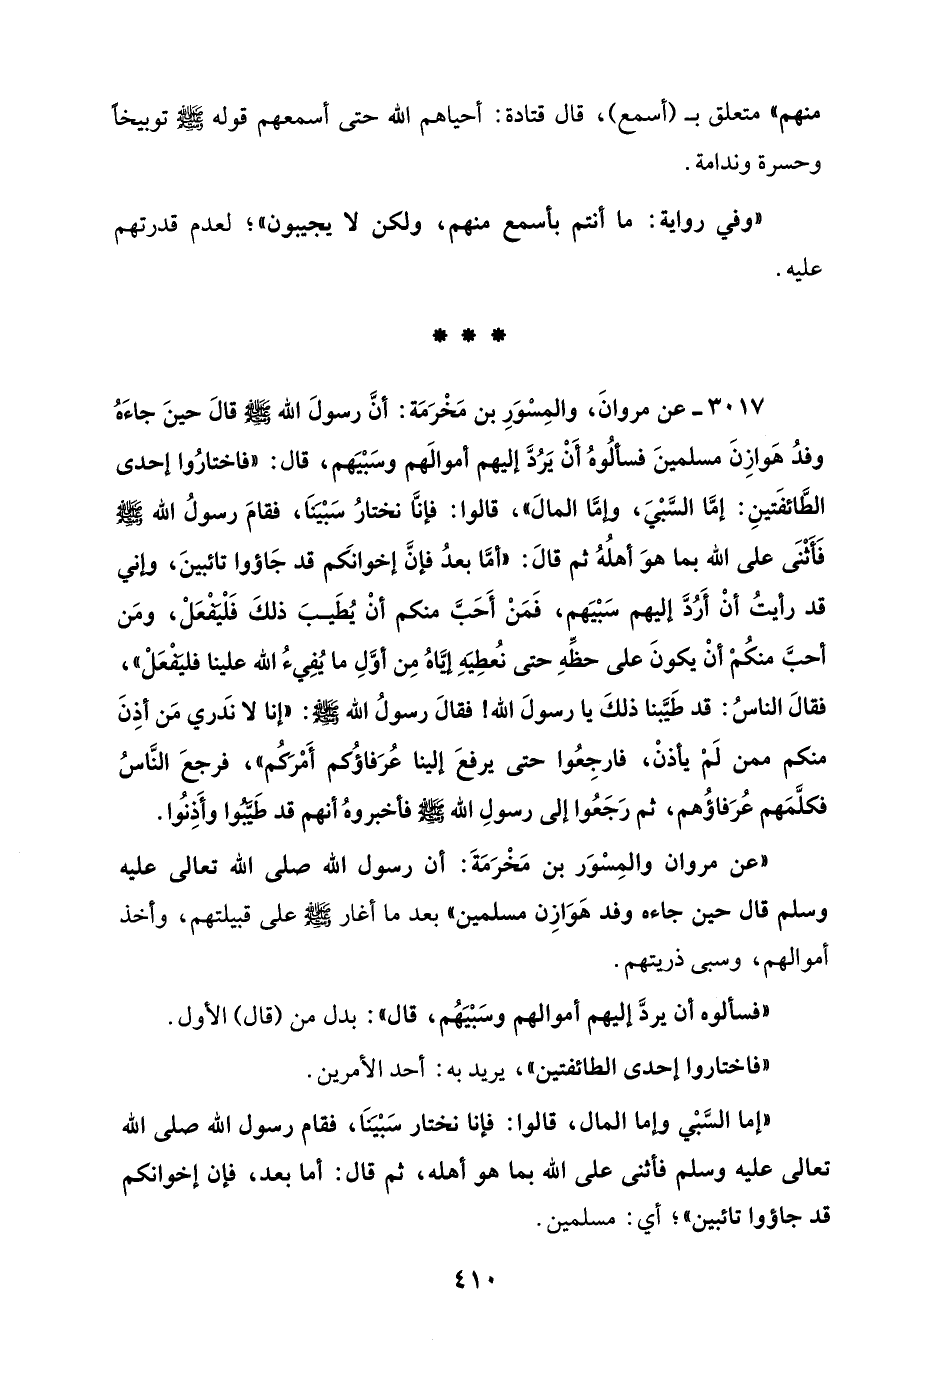 منهم» متعلق بـ (أسمع)، قال قتادة: أحياهم الله حتى أسمعهم قوله ﷺ توبيخاً
وحسرة وندامة.
«وفي رواية: ما أنتم بأسمع منهم، ولكن لا يجيبون»؛ لعدم قدرتهم
عليه.
* * *
٣٠١٧ ـ عن مروانَ، والمِسْوَرِ بن مَخْرَمَة: أنَّ رسولَ الله ﷺ قالَ حينَ جاءَهُ
وفدُ هَوازِنَ مسلمينَ فسألُوهُ أَنْ يَرُدَّ إليهم أموالَهم وسَبْيَهم، قال: «فاختارُوا إحدى
الطَّائفَتينِ: إمَّا السَّبْيَ، وإمَّا المالَ»، قالوا: فإنَّا نختارُ سَبْيَنَا، فقامَ رسولُ الله ﷺ
فَأَثْنَى على الله بما هوَ أهلُهُ ثم قالَ: «أمَّا بعدُ فإنَّ إخوانَكم قد جَاؤوا تائبينَ، وإني
قد رأيتُ أنْ أَرُدَّ إليهم سَبْيَهم، فَمَنْ أَحَبَّ منكم أنْ يُطَيـبَ ذلكَ فَلْيَفْعَلْ، ومَن
أحبَّ منكُمْ أنْ يكونَ على حظِّهِ حتى نُعطِيَهِ إيَّاهُ مِن أوَّلِ ما يُفِيءُ الله علينا فليَفْعَلْ»،
فقالَ الناسُ: قد طَيَّبنا ذلكَ يا رسولَ الله! فقالَ رسولُ الله ﷺ: «إنا لا نَدري مَن أذِنَ
منكم ممن لَمْ يأذنْ، فارجِعُوا حتى يرفعَ إلينا عُرَفاؤُكم أَمْرَكُم»، فرجعَ النَّاسُ
فكلَّمَهم عُرَفاؤُهم، ثم رَجَعُوا إلى رسولِ الله ﷺ فأخبروهُ أنهم قد طَيَّبُوا وأَذِنُوا.
«عن مروان والمِسْوَر بن مَخْرَمَةَ: أن رسول الله صلى الله تعالى عليه
وسلم قال حين جاءه وفد هَوَازِن مسلمين» بعد ما أغار ﷺ على قبيلتهم، وأخذ
أموالهم، وسبى ذريتهم.
«فسألوه أن يردَّ إليهم أموالهم وسَبْيَهُم، قال»: بدل من (قال) الأول.
«فاختاروا إحدى الطائفتين»، يريد به: أحد الأمرين.
«إما السَّبْي وإما المال، قالوا: فإنا نختار سَبْيَنَا، فقام رسول الله صلى الله
تعالى عليه وسلم فأثنى على الله بما هو أهله، ثم قال: أما بعد، فإن إخوانكم
قد جاؤوا تائبين»؛ أي: مسلمين.
٤١٠